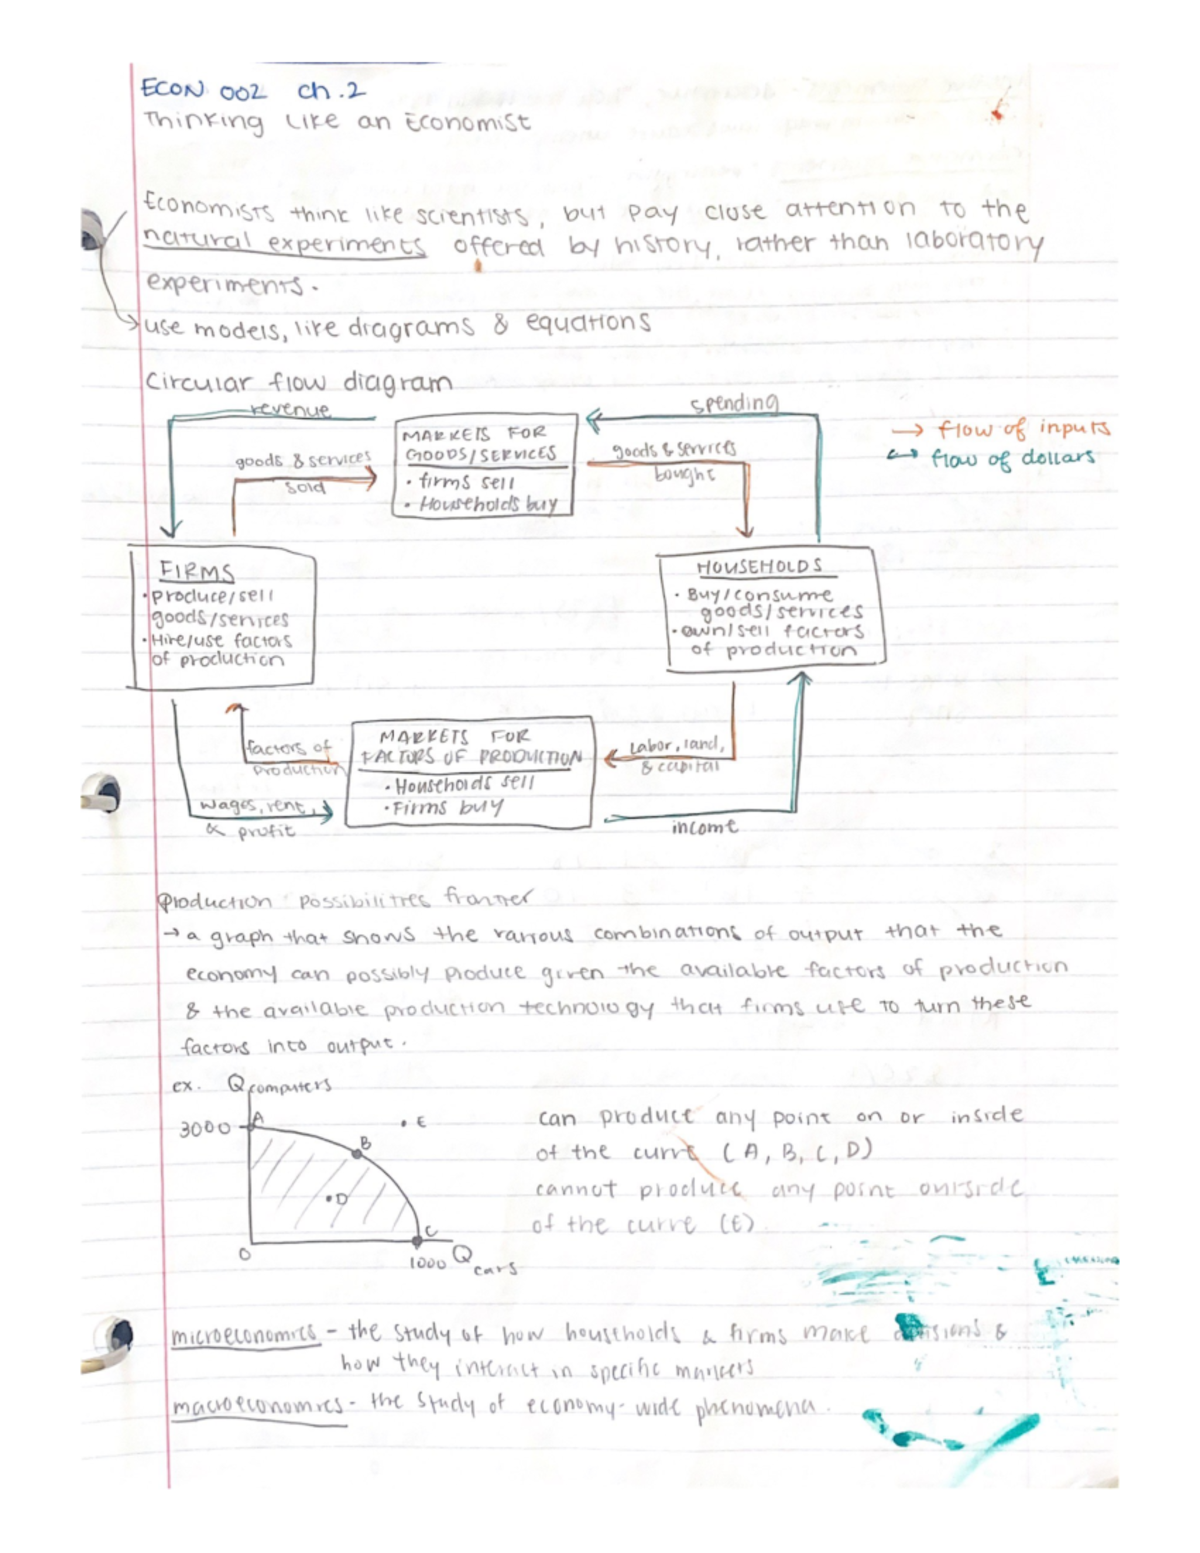 ECON 002 ch.2
Thinking Like an Economist
Economists think like scientists, but pay close attention to the
natural experiments offered by history, rather than laboratory
experiments.
use models, like diagrams & equations
Circular flow diagram
revenue
spending
MARKETS FOR
GOODS/SERVICES
• firms sell
• Households buy
goods & services
sold
goods & services
bought
→ flow of inputs
↔ flow of dollars
FIRMS
• produce/sell
goods/services
• Hire/use factors
of production
HOUSEHOLDS
• Buy/consume
goods/services
• own/sell factors
of production
MARKETS FOR
FACTORS OF PRODUCTION
• Households sell
• Firms buy
factors of
production
Labor, land,
& capital
wages, rent,
& profit
income
Production Possibilities frontier
→ a graph that shows the various combinations of output that the
economy can possibly produce given the available factors of production
& the available production technology that firms use to turn these
factors into output.
ex. Q computers
3000
A
B
C
• D
• E
0
1000
Q cars
can produce any point on or inside
of the curve (A, B, C, D)
cannot produce any point outside
of the curve (E)
microeconomics - the study of how households & firms make decisions &
how they interact in specific markets
macroeconomics - the study of economy-wide phenomena.